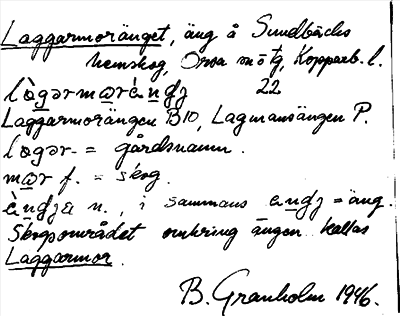 Laggarmoränget, äng å Sundbäcks
hemskog, Orsa sn ö tg, Kopparb. l.
22
Laggarmorängen B10, Lagmansängen P.
lògər- = gårdsnamn.
mωr f. = skog.
n., i sammans = äng.
Skogsområdet omkring ängen kallas
Laggarmor.
B. Granholm 1946.